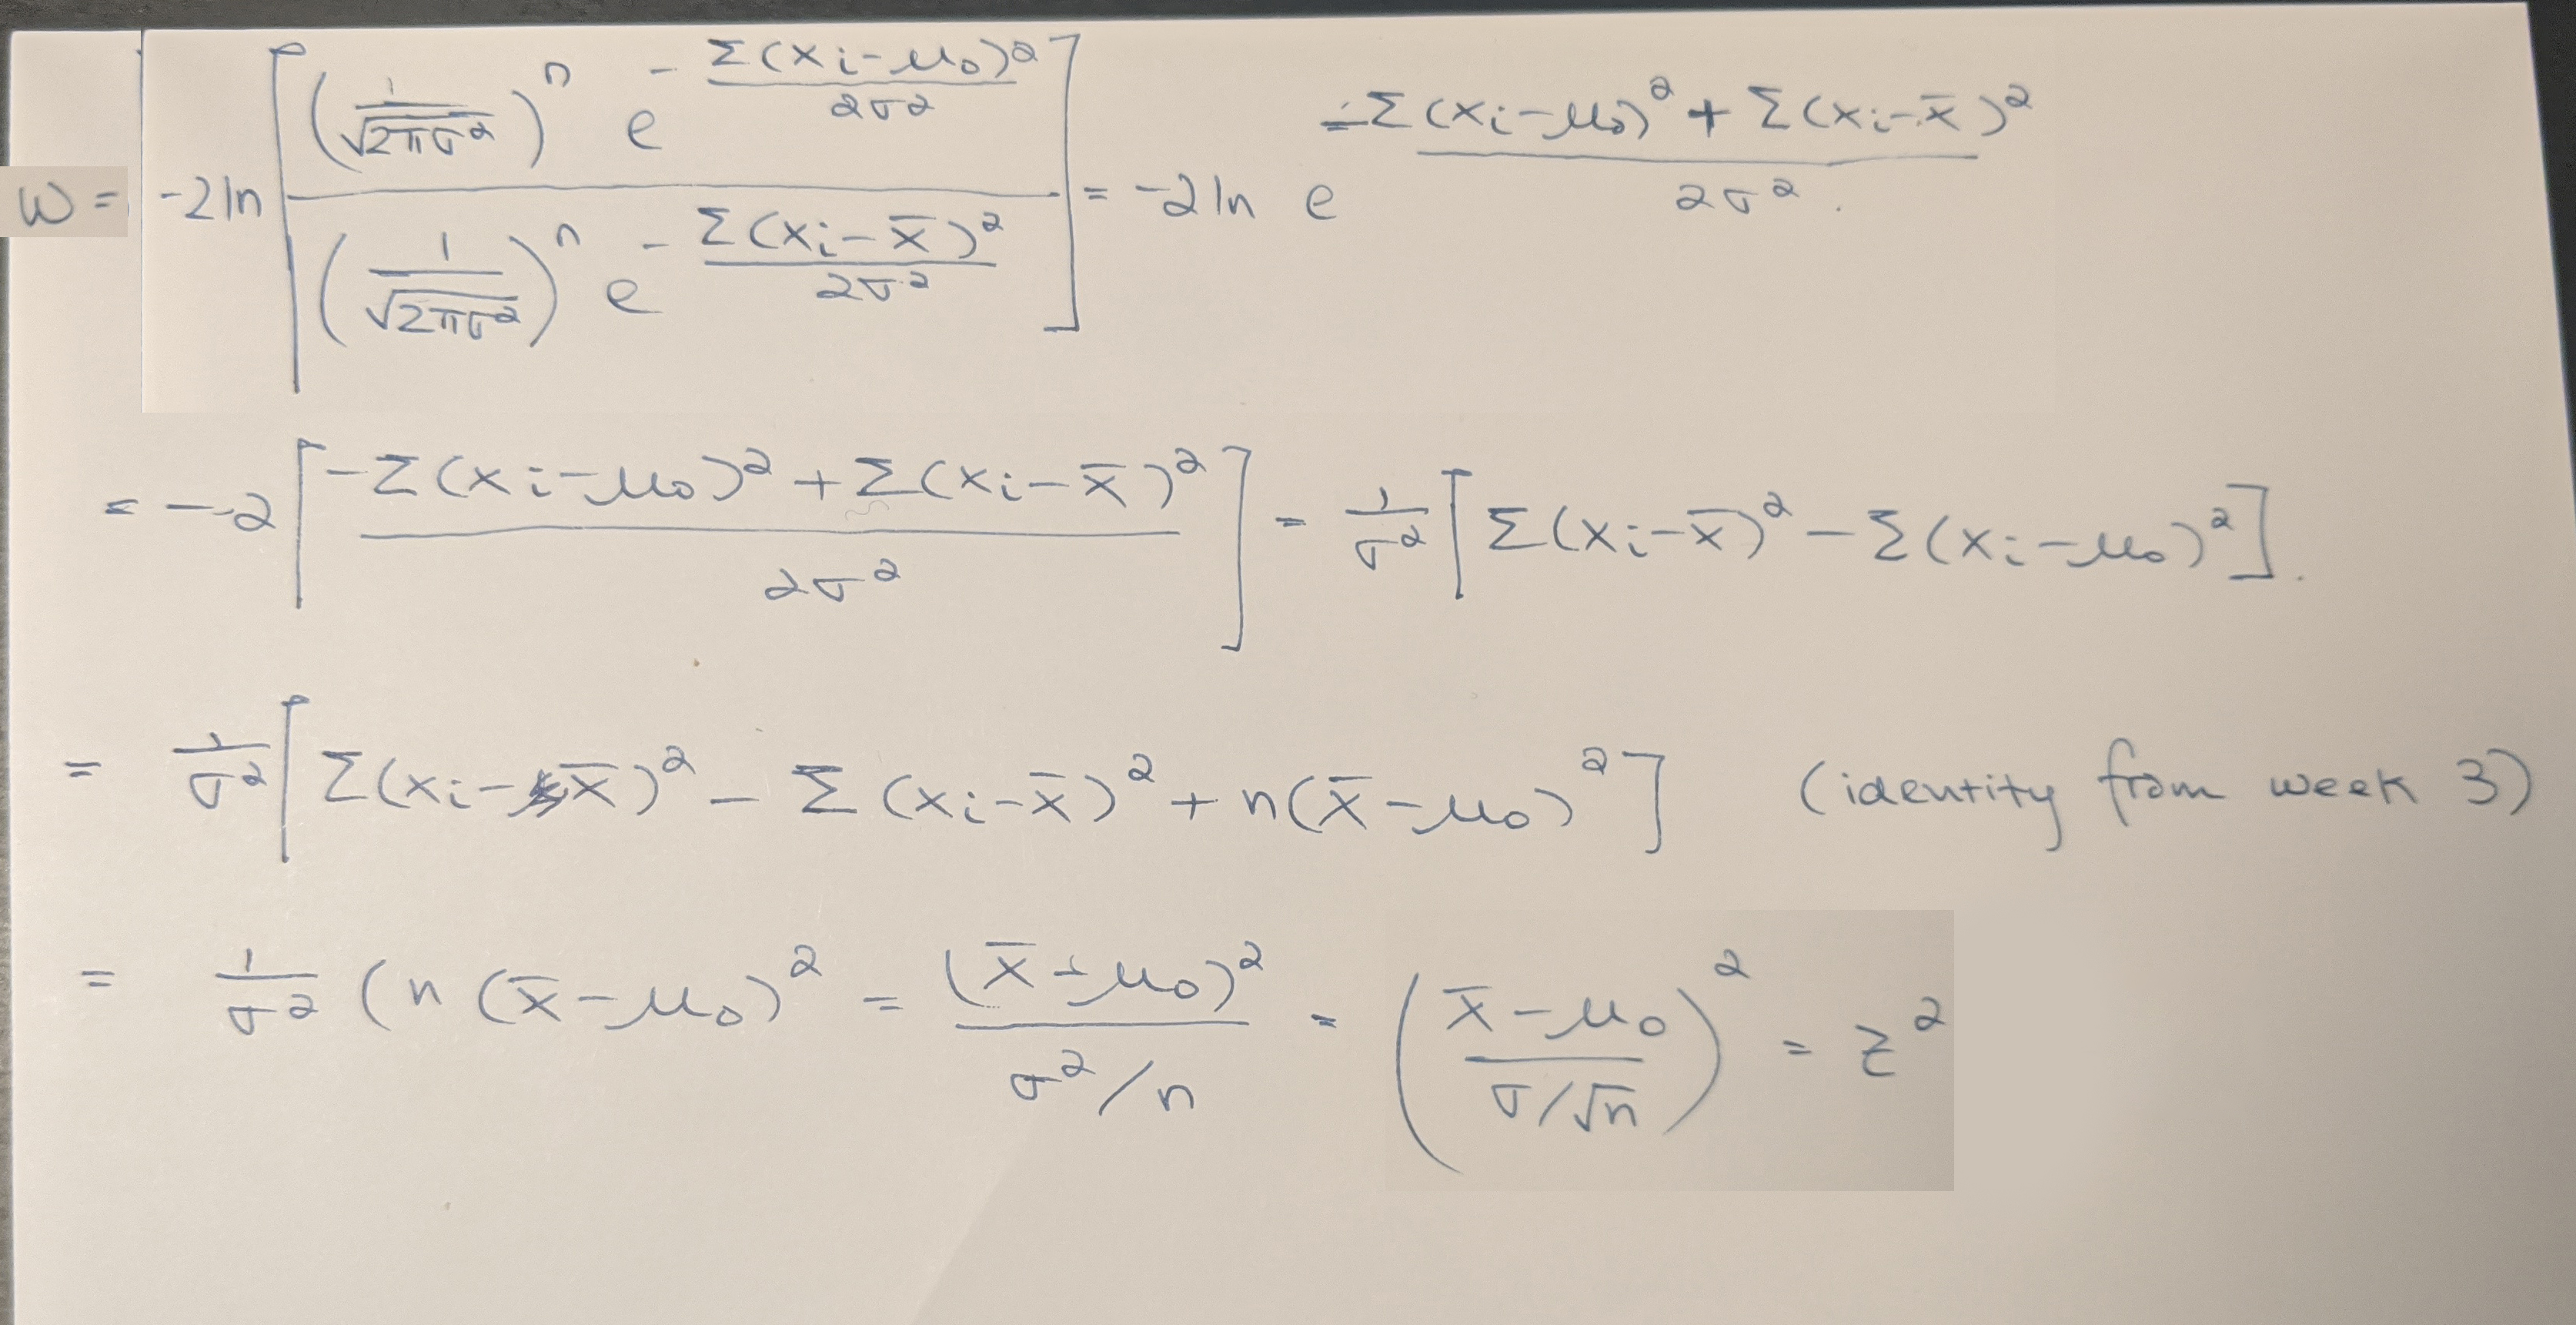 W = -2 ln [ (1/√(2πσ²))ⁿ e^(-Σ(xᵢ-μ₀)²/2σ²) / (1/√(2πσ²))ⁿ e^(-Σ(xᵢ-x̄)²/2σ²) ] = -2 ln e^((-Σ(xᵢ-μ₀)² + Σ(xᵢ-x̄)²)/2σ²).
= -2 [ (-Σ(xᵢ-μ₀)² + Σ(xᵢ-x̄)²) / 2σ² ] = 1/σ² [ Σ(xᵢ-x̄)² - Σ(xᵢ-μ₀)² ].
= 1/σ² [ Σ(xᵢ-x̄)² - Σ(xᵢ-x̄)² + n(x̄-μ₀)² ] (identity from week 3)
= 1/σ² (n(x̄-μ₀)² = (x̄-μ₀)² / σ²/n = ( (x̄-μ₀) / σ/√n )² = z²